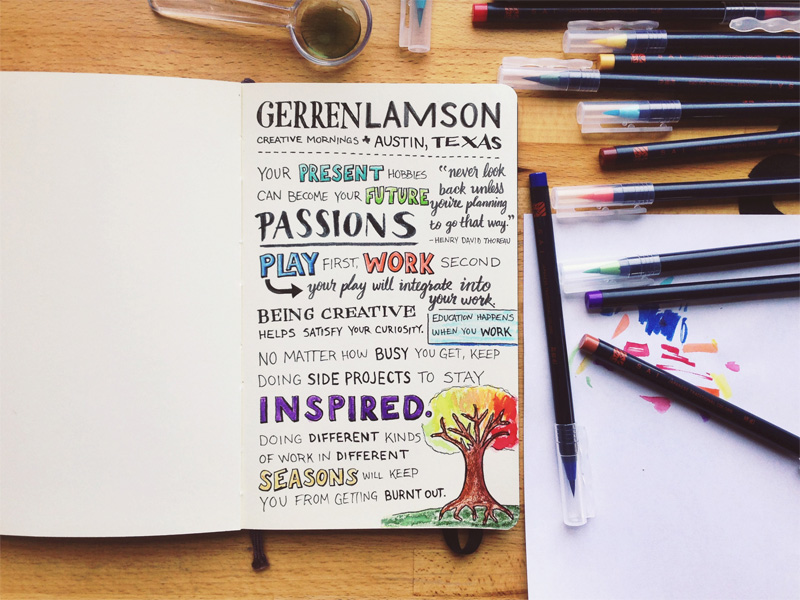 GERRENLAMSON
CREATIVE MORNINGS + AUSTIN, TEXAS
YOUR PRESENT HOBBIES
CAN BECOME YOUR FUTURE
PASSIONS
"never look
back unless
you're planning
to go that way."
-HENRY DAVID THOREAU
PLAY FIRST, WORK SECOND
your play will integrate into
your work.
BEING CREATIVE
HELPS SATISFY YOUR CURIOSITY.
EDUCATION HAPPENS
WHEN YOU WORK
NO MATTER HOW BUSY YOU GET, KEEP
DOING SIDE PROJECTS TO STAY
INSPIRED.
DOING DIFFERENT KINDS
OF WORK IN DIFFERENT
SEASONS WILL KEEP
YOU FROM GETTING BURNT OUT.